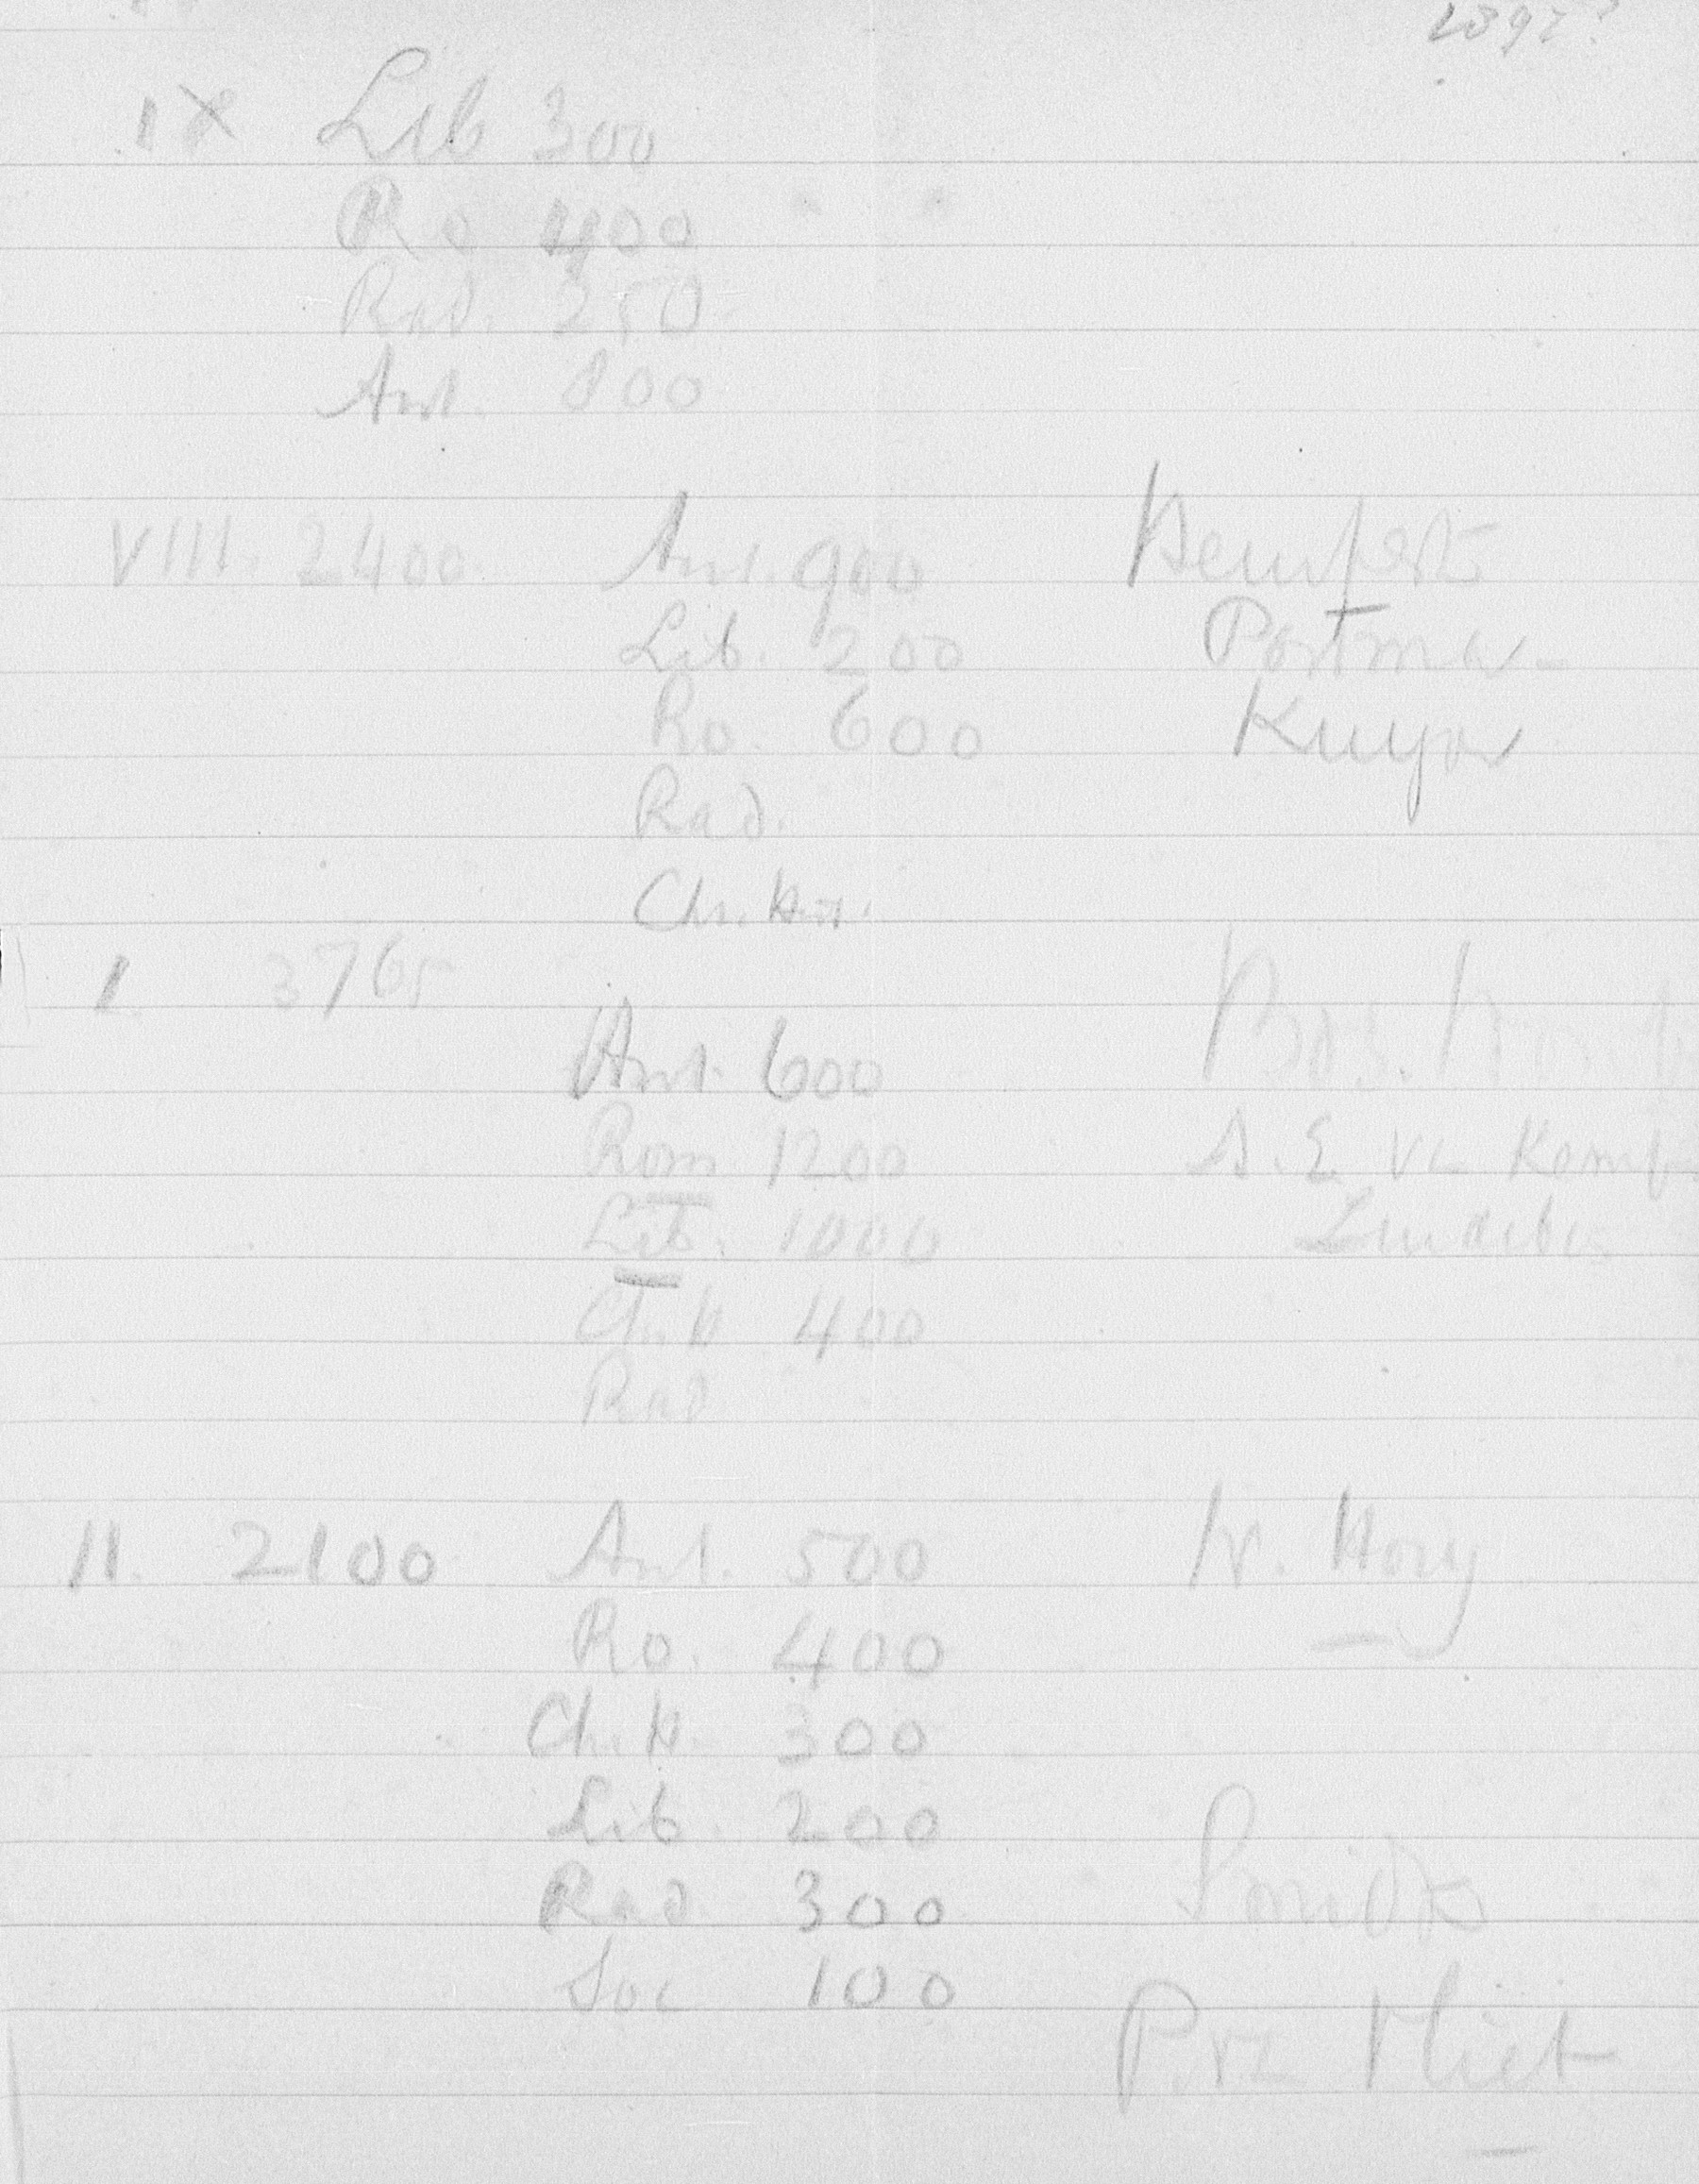 1897?
IX Lib 300
Ro 400
Rad. 250
Ant. 800
VIII. 2400 Ant. 900
Lib. 200 Postma
Ro. 600 Kuyper
Rad.
Ch. Hist.
I 3765
Ant. 600
Rom 1200
Lib. 1000
Ch. H 400
Rad
II. 2100 Ant. 500
Ro. 400
Ch. H. 300
Lib. 200
Rad 300 Smidt
Soc 100
P. vd Vliet